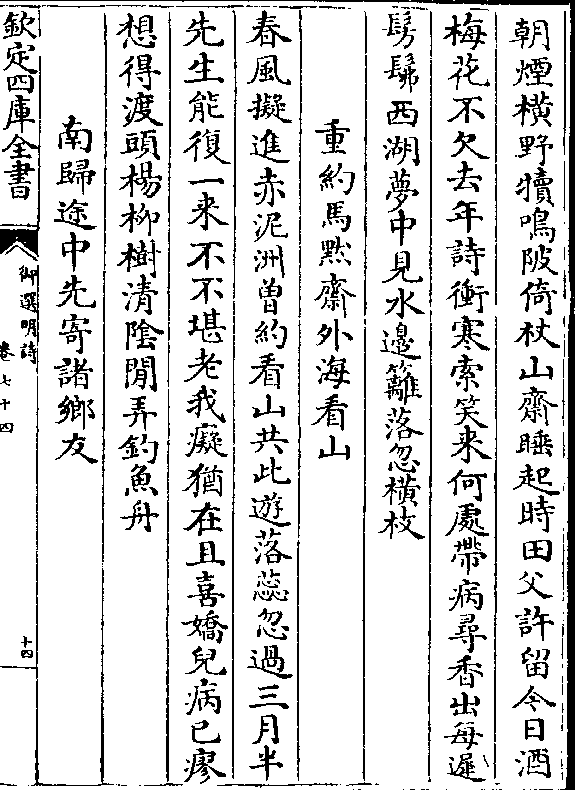 朝煙橫野犢鳴陂倚杖山齋睡起時田父許留今日酒
梅花不欠去年詩衝寒索笑來何處帶病尋香出每遲
髣髴西湖夢中見水邊籬落忽橫枝
重約馬默齋外海看山
春風擬進赤泥洲曾約看山共此遊落蕊忽過三月半
先生能復一來不不堪老我癡猶在且喜嬌兒病已瘳
想得渡頭楊柳樹清陰閒弄釣魚舟
南歸途中先寄諸鄉友
欽定四庫全書
御選明詩
卷七十四
十四